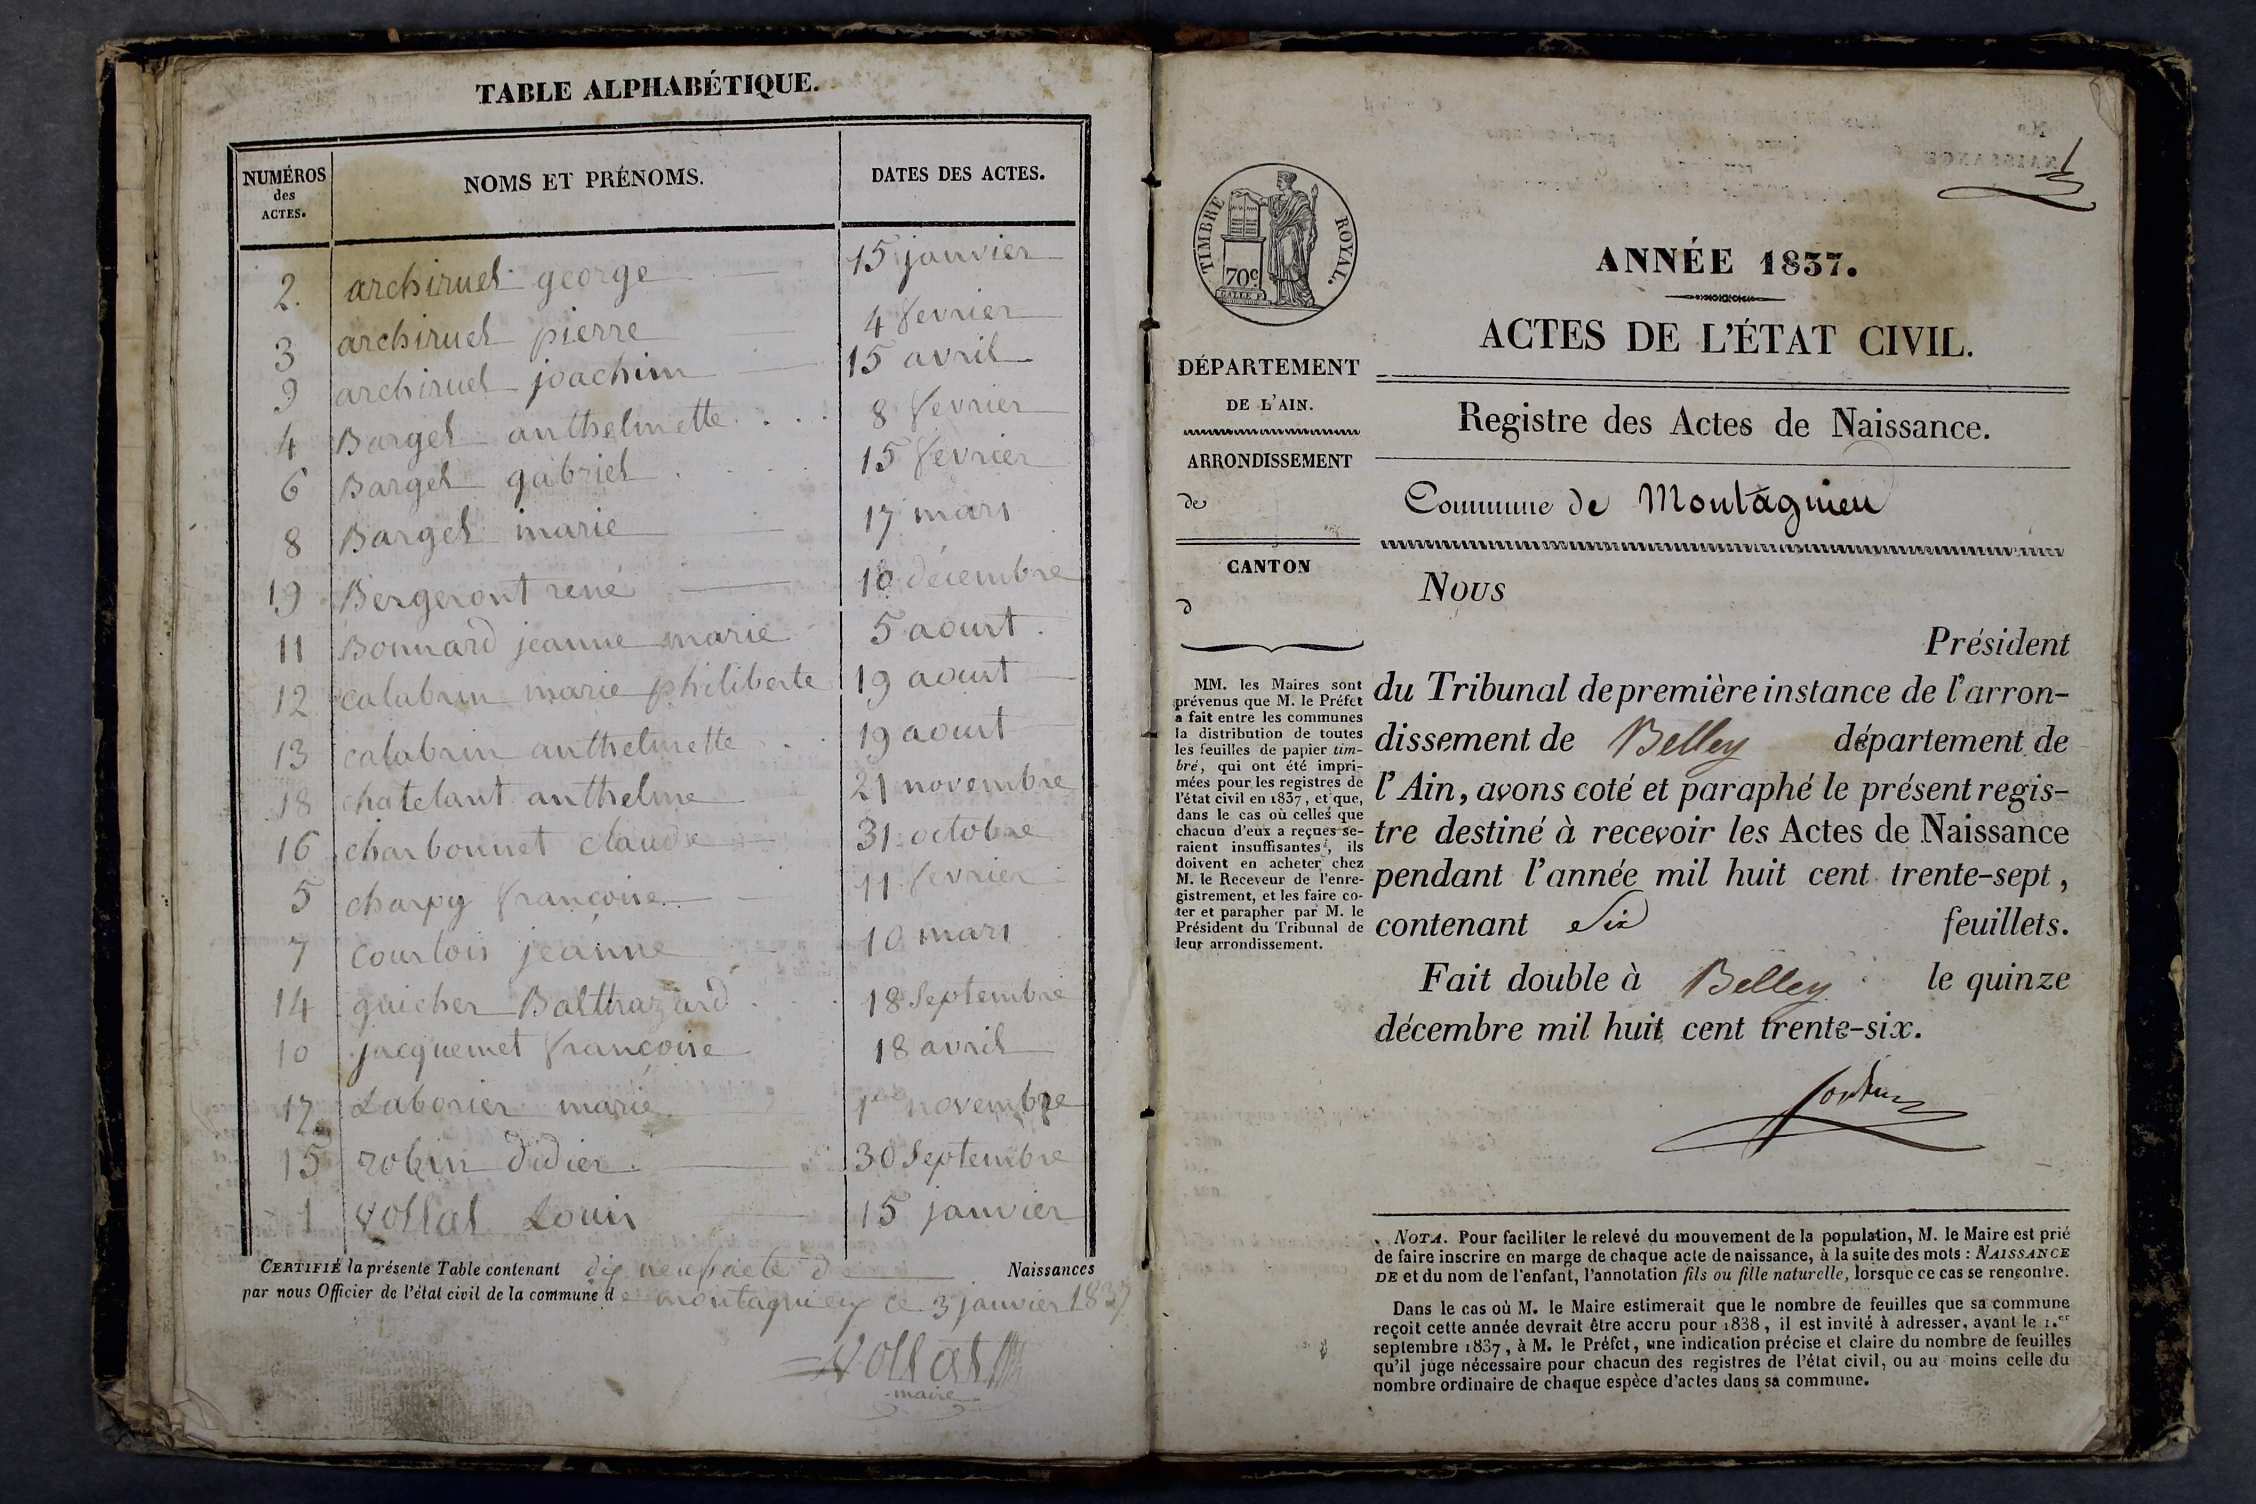 TABLE ALPHABÉTIQUE.
NUMÉROS des ACTES. NOMS ET PRÉNOMS. DATES DES ACTES.
2. archiruel george 15 janvier
3 archiruel pierre 4 fevrier
9 archiruel joachim 15 avril
4 Bargel anthelmette 8 fevrier
6 Bargel gabriel 15 fevrier
8 Bargel marie 17 mars
19 Bergeront rené 10 décembre
11 Bonnard jeanne marie 5 aoust
12 calabrin marie philiberte 19 aoust
13 calabrin anthelmette 19 aoust
18 chatelant anthelme 21 novembre
16 charbonnet claude 31 octobre
5 charpy francoise 11 fevrier
7 courtois jeanne 10 mars
14 guicher Balthazard 18 Septembre
10 jacquemet francoise 18 avril
17 Laborier marie 1er novembre
15 robin didier 30 Septembre
1 vollat Louis 15 janvier
CERTIFIÉ la présente Table contenant dix neuf acte d Naissances
par nous Officier de l'état civil de la commune de montagnieu ce 3 janvier 1837
Vollat
maire
1
TIMBRE ROYAL.
70c
DÉPARTEMENT
DE L'AIN.
ARRONDISSEMENT
de
CANTON
d
MM. les Maires sont
prévenus que M. le Préfet
a fait entre les communes
la distribution de toutes
les feuilles de papier tim-
bré, qui ont été impri-
mées pour les registres de
l'état civil en 1837, et que,
dans le cas où celles que
chacun d'eux a reçues se-
raient insuffisantes, ils
doivent en acheter chez
M. le Receveur de l'enre-
gistrement, et les faire co-
ter et parapher par M. le
Président du Tribunal de
leur arrondissement.
ANNÉE 1837.
ACTES DE L'ÉTAT CIVIL.
Registre des Actes de Naissance.
Commune de Montagnieu
Nous
Président
du Tribunal de première instance de l'arron-
dissement de Belley département de
l'Ain, avons coté et paraphé le présent regis-
tre destiné à recevoir les Actes de Naissance
pendant l'année mil huit cent trente-sept,
contenant Six feuillets.
Fait double à Belley le quinze
décembre mil huit cent trente-six.
NOTA. Pour faciliter le relevé du mouvement de la population, M. le Maire est prié
de faire inscrire en marge de chaque acte de naissance, à la suite des mots : NAISSANCE
DE et du nom de l'enfant, l'annotation fils ou fille naturelle, lorsque ce cas se rencontre.
Dans le cas où M. le Maire estimerait que le nombre de feuilles que sa commune
reçoit cette année devrait être accru pour 1838, il est invité à adresser, avant le 1.er
septembre 1837, à M. le Préfet, une indication précise et claire du nombre de feuilles
qu'il juge nécessaire pour chacun des registres de l'état civil, ou au moins celle du
nombre ordinaire de chaque espèce d'actes dans sa commune.